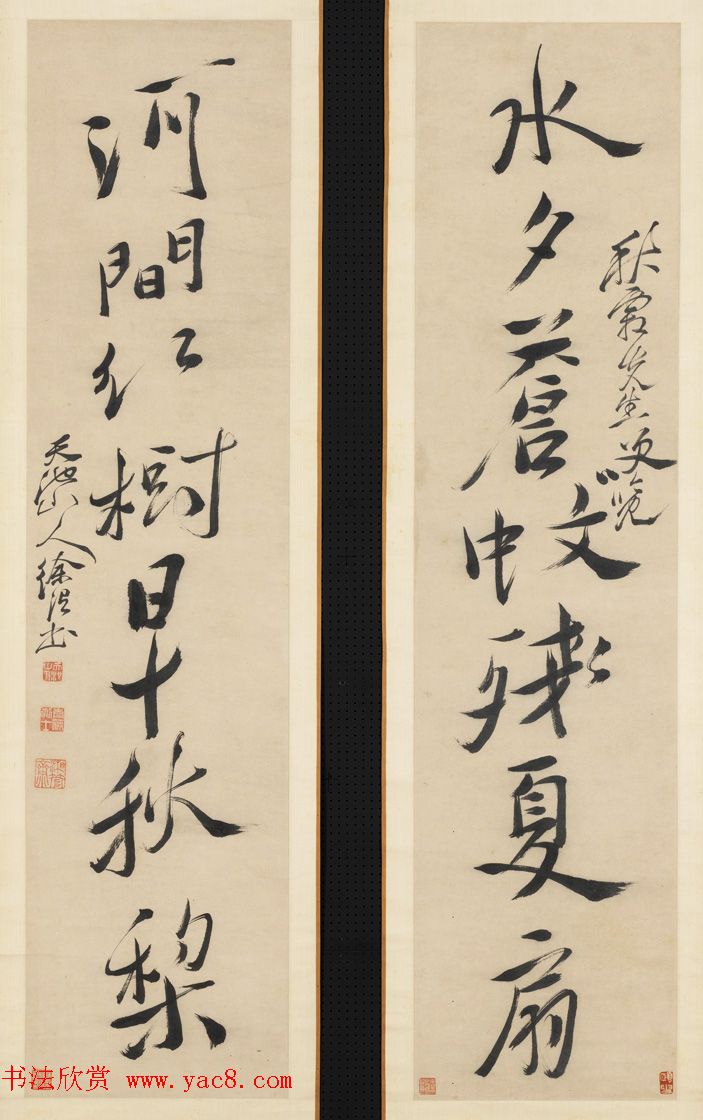 水夕蒼蚊殘夏扇
秋先生
河間紅樹早秋梨
天池山人徐渭書
书法欣赏 www.yac8.com